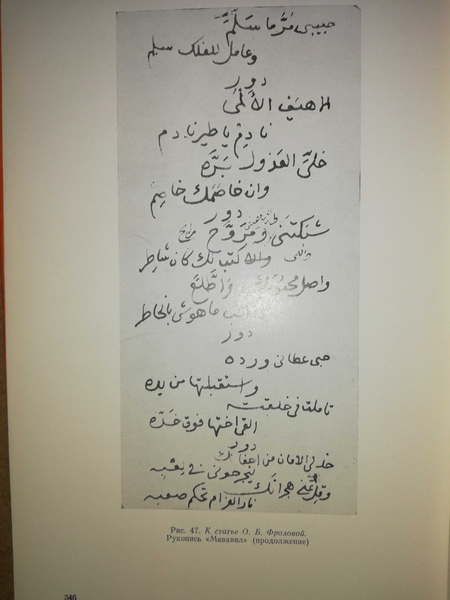 حبيبى مُرّ ما سَلَّمْ
وعامل للفلك سليم
دور
الاهيَف الأَلمَى
نادِمْ ياطير نادم
خلَّى العَذول بَرَّه
وان خاصَمك خاصِمْ
دور
شبَكتَنى ومَروَّح
والا كتب لك كان شاطِر
واصل وَاطَّلَع
ماهوش بالخاطر
دور
حبى عطانى ورده
واستقبلتها من يده
تاملت فى خلقته
القى اختها فوق خدّه
دور
خدلى الامان من اعفانك
ليجرحونى فى لعْبه
وقِلّ عنّى هجرانك
نار الغرام تحكم صعبه
Рис. 47. К статье О. Б. Фроловой.
Рукопись «Мававил» (продолжение)
346